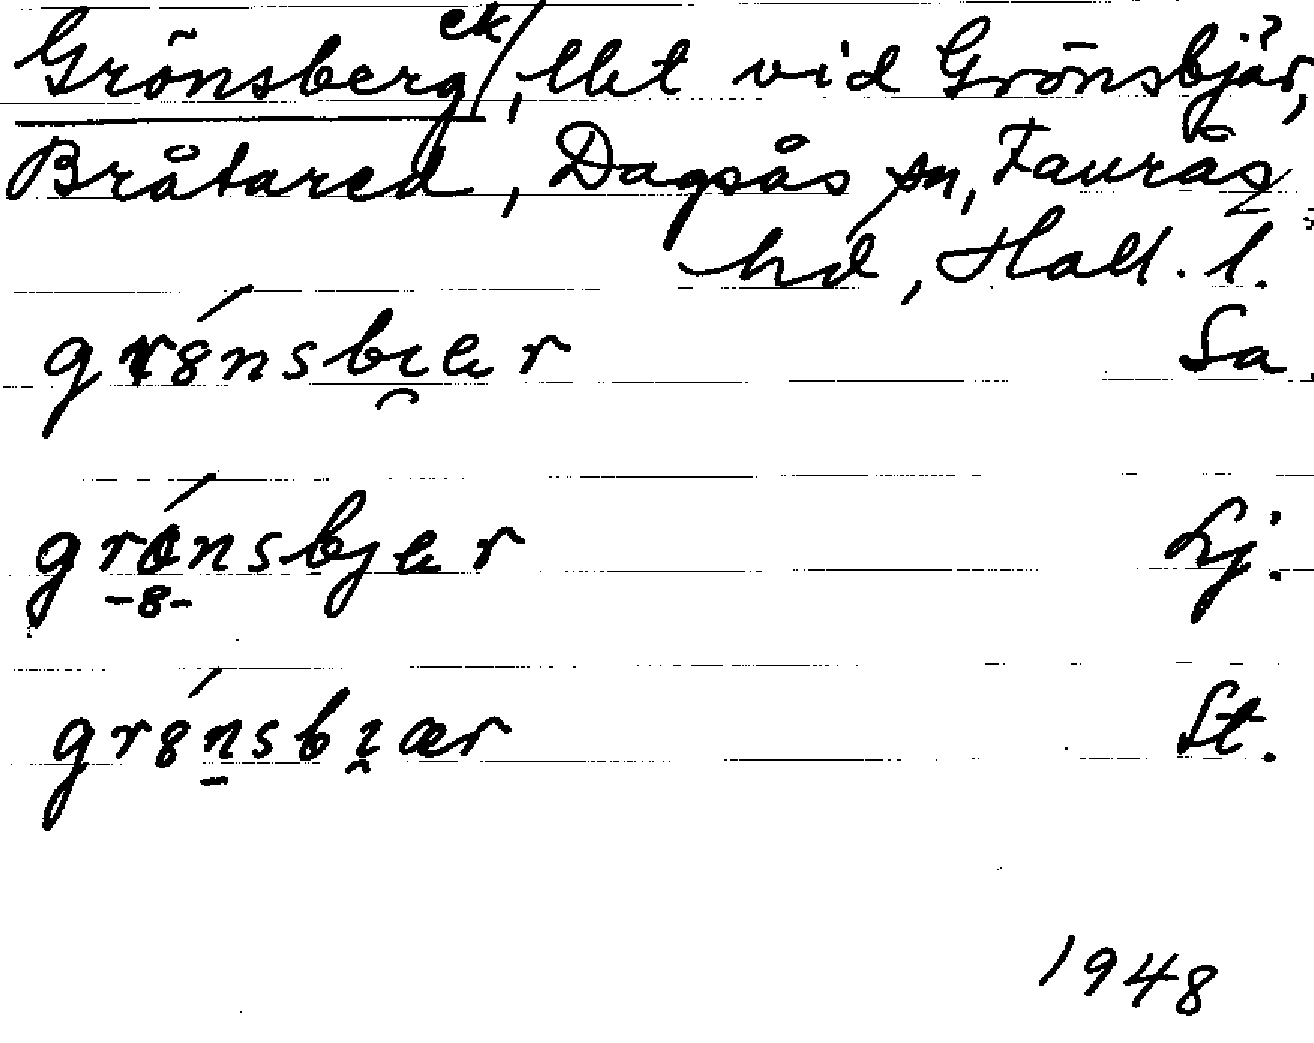 Grönsberg ek/, llet vid Grönsbjär,
Bråtared, Dagsås sn, Faurås
hd, Hall. l.
grönsbi̯ær Sa
grönsbjær Lj.
-8-
grönsbi̯ær St.
1948